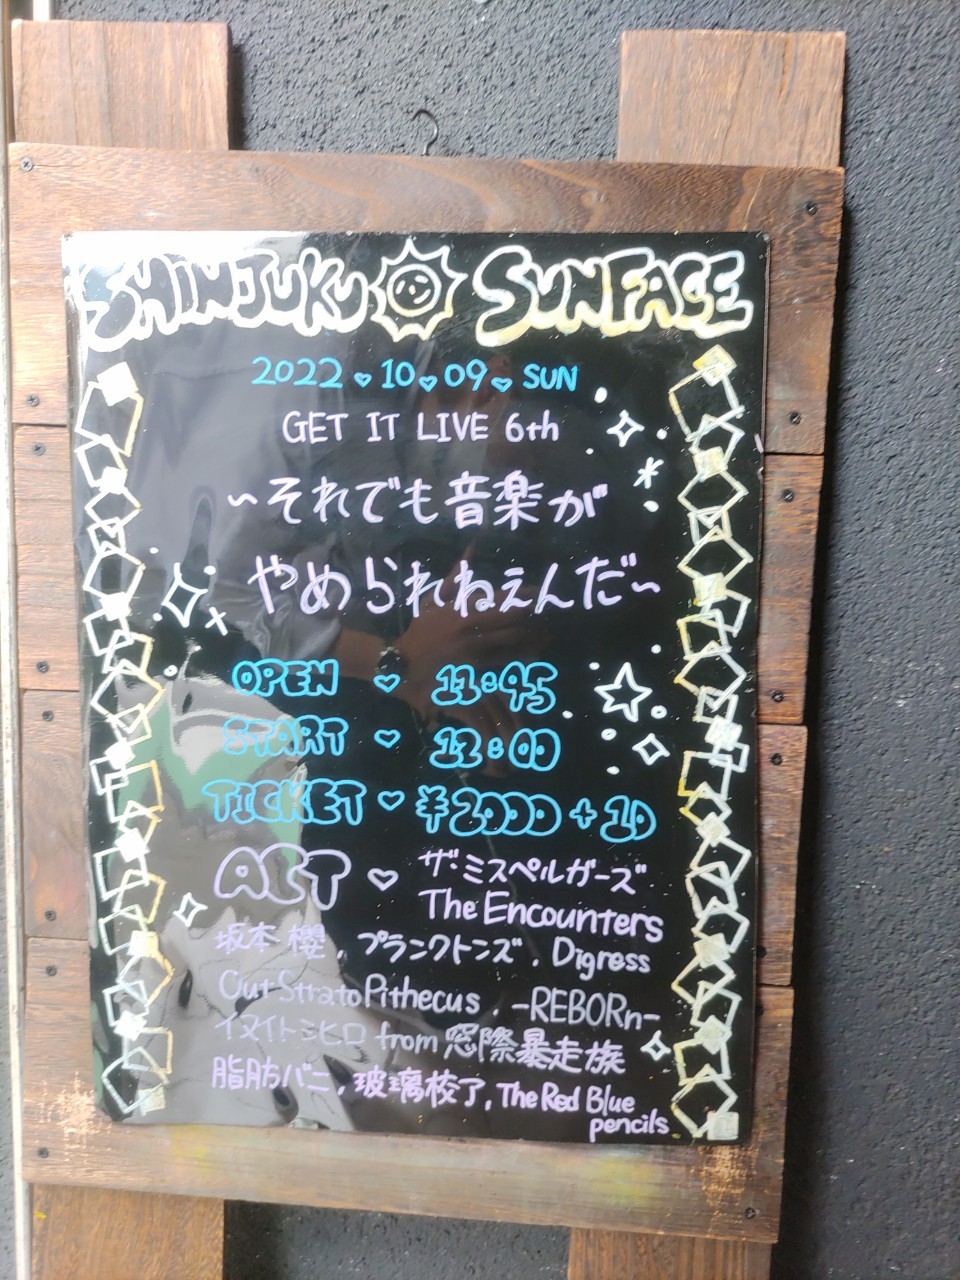 SHINJUKU SUNFACE
2022♡10♡09♡SUN
GET IT LIVE 6th
~それでも音楽が
やめられねぇんだ~
OPEN ♡ 11:45
START ♡ 12:00
TICKET ♡ ¥2000+1D
ACT ♡ ザ・ミスペルガーズ
The Encounters
坂本 櫻, プランクトンズ, Digress
OutStratoPithecus, -REBORn-
イヌイトシヒロ from 窓際暴走族
脂肪バニ, 玻璃校了, The Red Blue
pencils